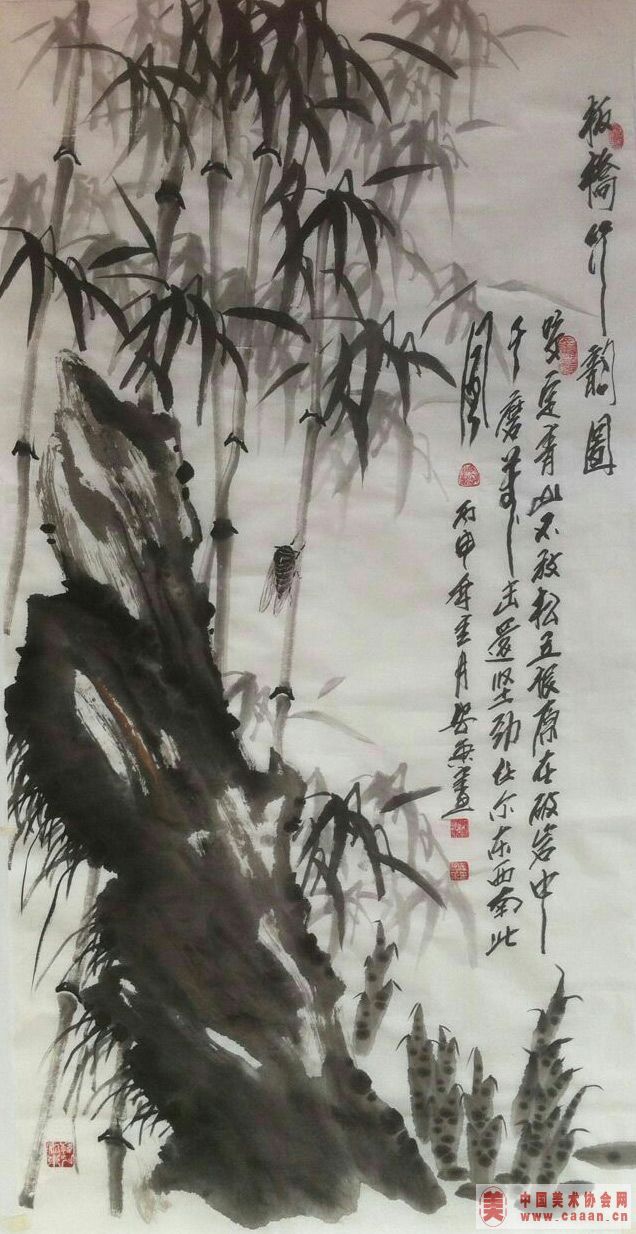 板橋竹韻圖
咬定青山不放松立根原在破岩中
千磨萬击還坚劲任尔东西南北
風
丙申年月畫
美
中国美术协会网
www.caaan.cn